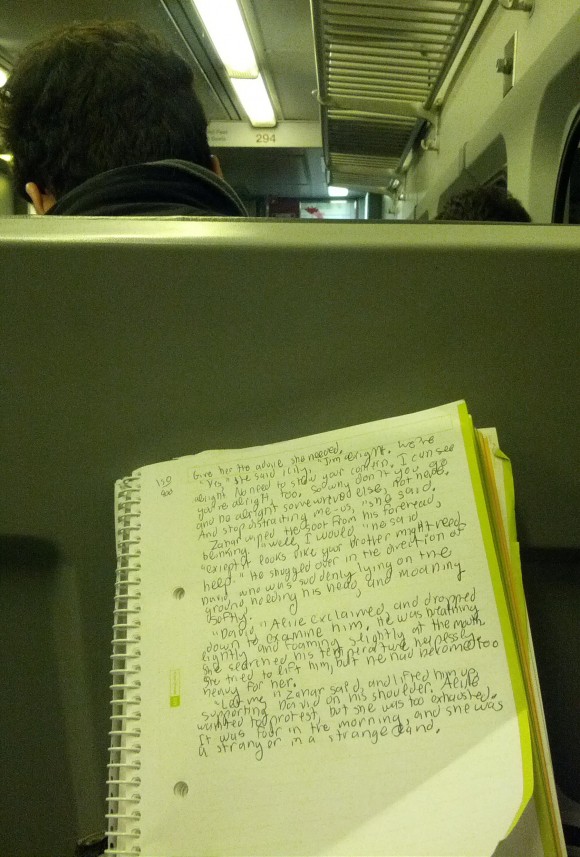 294
Give her the advice she needed.
"Yes," she said icily, "I'm alright. We're
alright. No need to show your concern. I can see
you're alright, too. So why don't you go
and be alright somewhere else, not here.
And stop distracting me-us," she said.
Zahar wiped the soot from his forehead,
blinking. "Well, I would" he said
"except it looks like your brother might need
help." He shugged over in the direction of
David who was suddenly lying on the
ground holding his head, and moaning
softly.
"David," Allie exclaimed, and dropped
down to examine him. He was breathing
lightly and foaming slightly at the mouth
She searched his temperature helplessly.
She tried to lift him, but he had become too
heavy for her.
"Let me," Zahar said, and lifted him up
supporting David on his shoulder. Allie
wanted to protest, but she was too exhausted.
It was four in the morning, and she was
a stranger in a strange land.